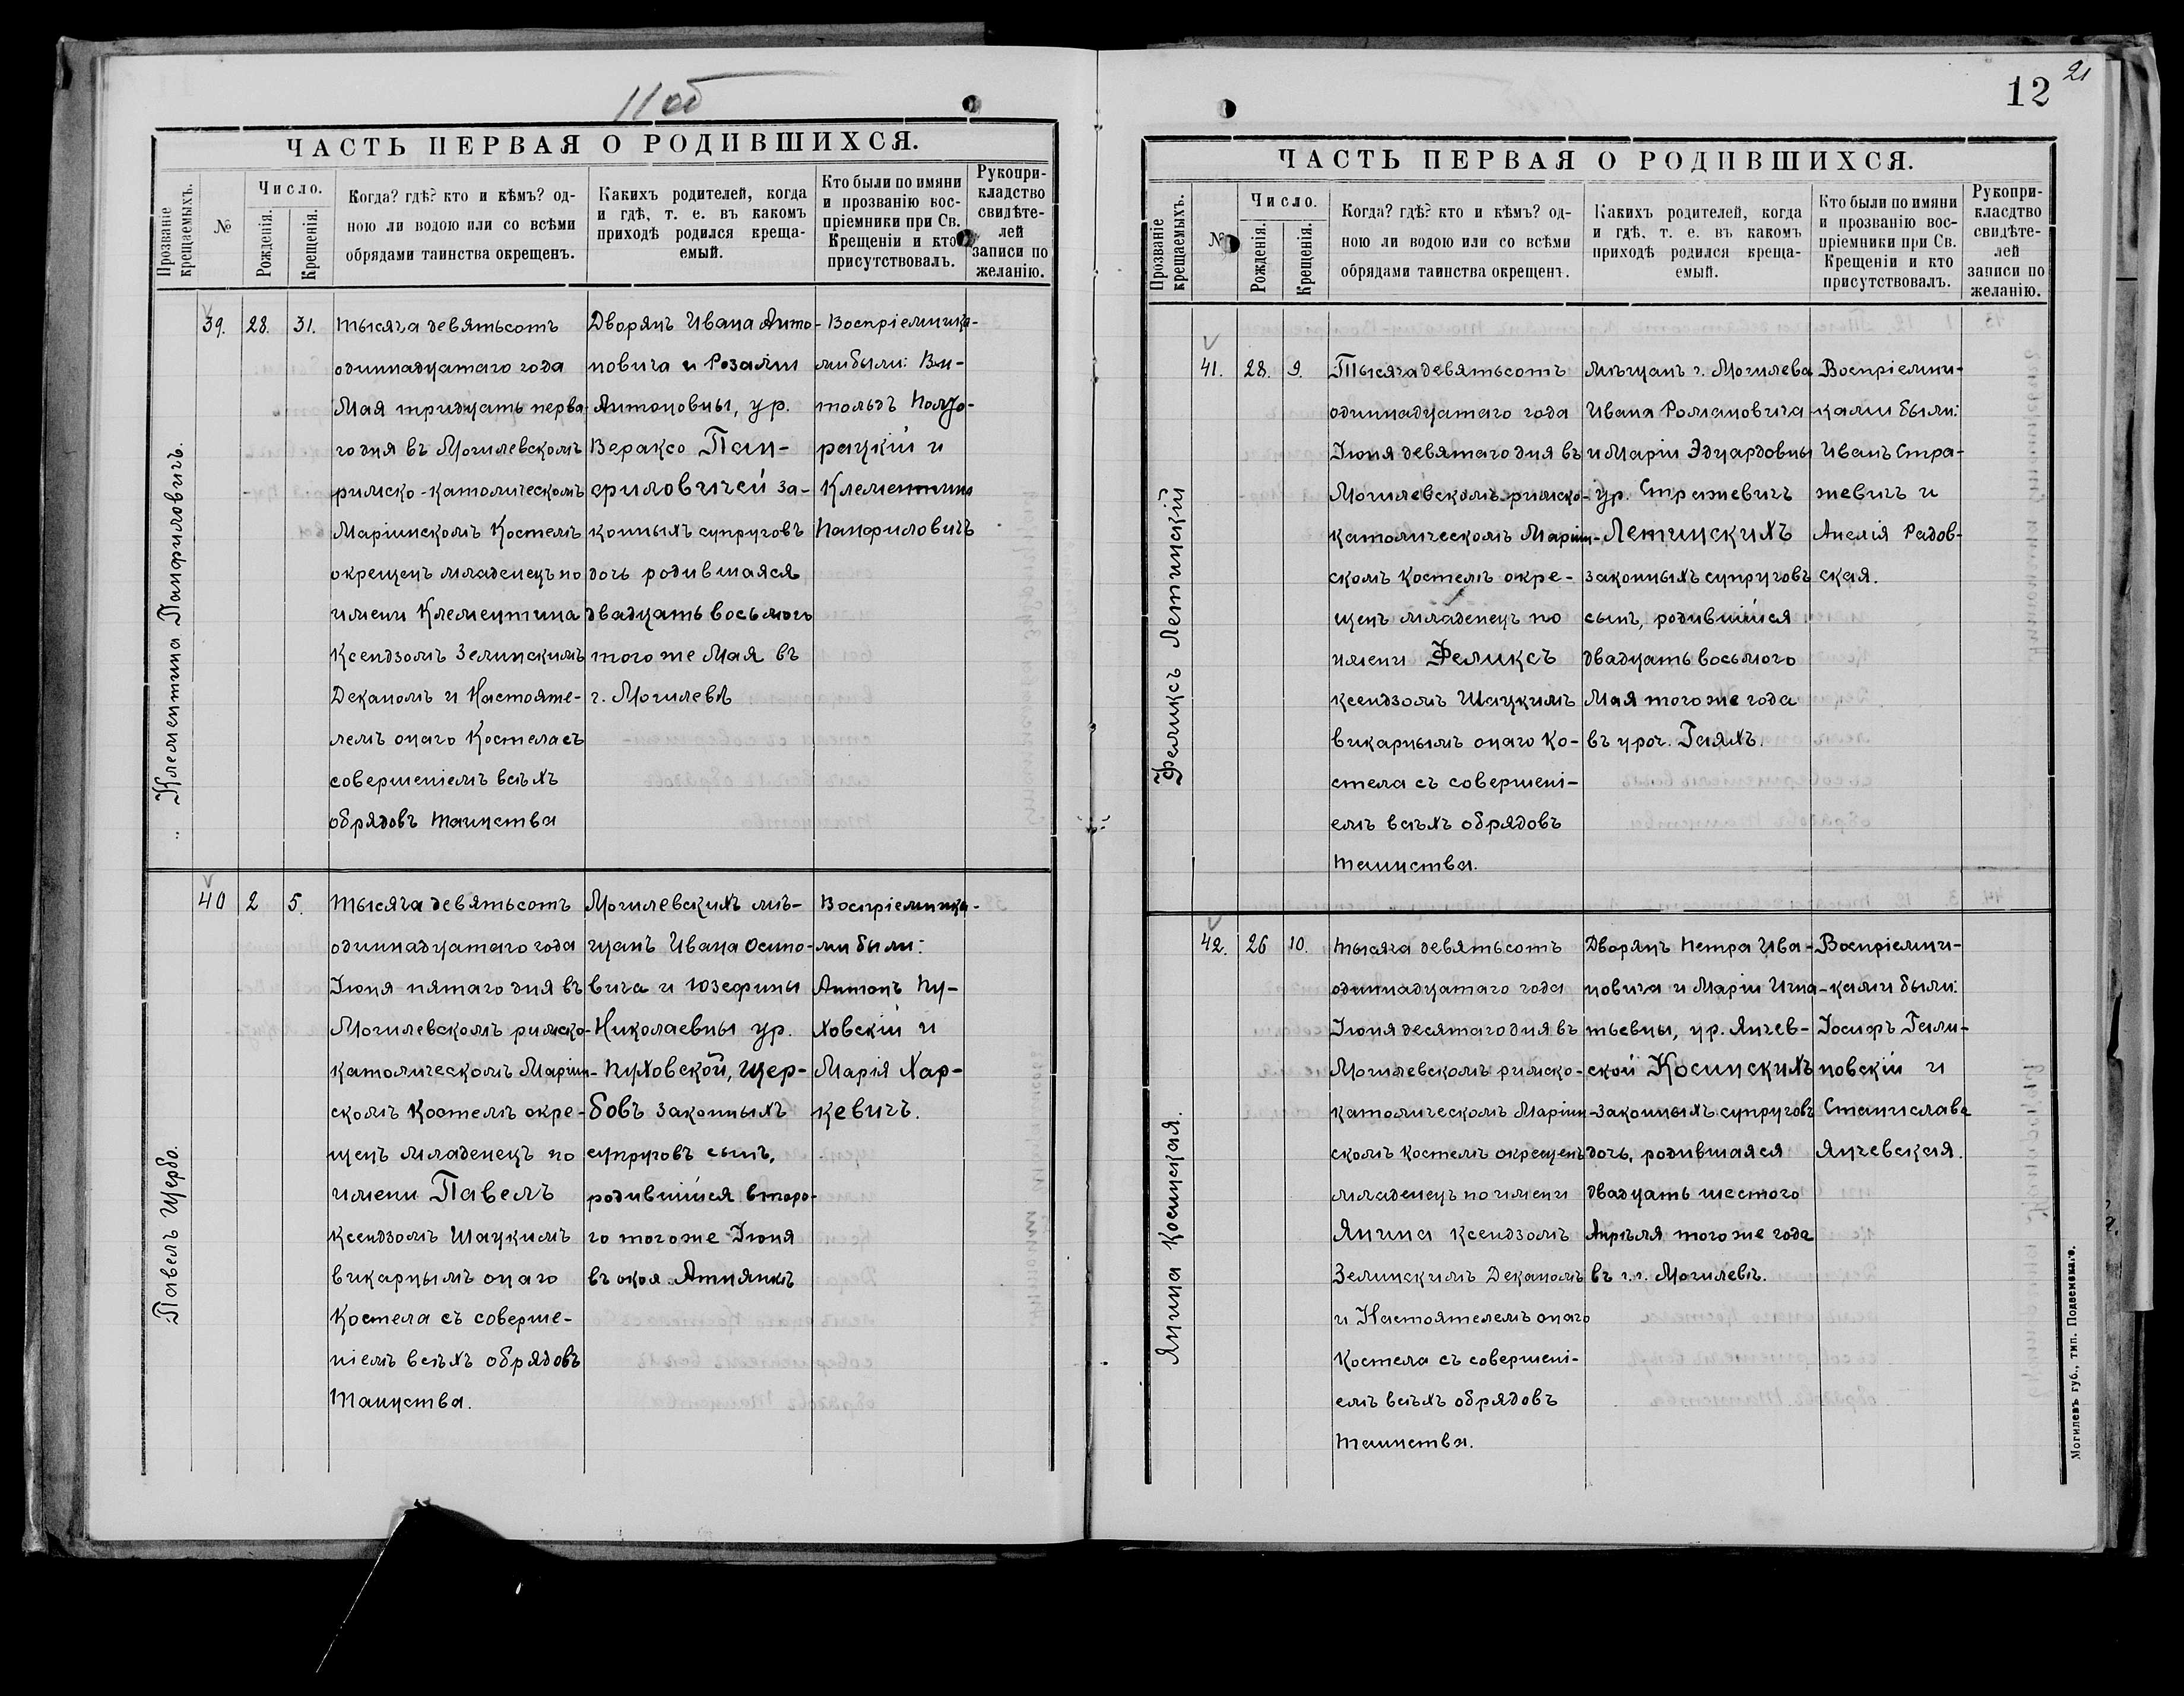 11 об
ЧАСТЬ ПЕРВАЯ О РОДИВШИХСЯ.
Прозваніе
крещаемыхъ.
№
Число.
Рожденія.
Крещенія.
Когда? гдѣ? кто и кѣмъ? од-
ною ли водою или со всѣми
обрядами таинства окрещенъ.
Какихъ родителей, когда
и гдѣ, т. е. въ какомъ
приходѣ родился креща-
емый.
Кто были по имяни
и прозванію вос-
пріемники при Св.
Крещеніи и кто
присутствовалъ.
Рукопри-
кладство
свидѣте-
лей
записи по
желанію.
Клементина Панфиловичъ.
39.
28.
31.
Тысяча девятьсотъ
одиннадцатаго года
Мая тридцать перва-
го дня въ Могилевскомъ
римско-католическомъ
Маріинскомъ Костелѣ
окрещенъ младенецъ по
имени Клементина
Ксендзомъ Зелинскимъ
Деканомъ и Настояте-
лемъ онаго Костела съ
совершеніемъ всѣхъ
обрядовъ таинства
Дворянъ Ивана Анто-
новича и Розаліи
Антоновны, ур.
Вераксо Пан-
филовичей за-
конныхъ супруговъ
дочь родившаяся
двадцать восьмого
того же Мая въ
г. Могилевѣ
Воспріемника-
ми были: Ви-
тольдъ Полто-
рацкій и
Клементина
Панфиловичъ
Павелъ Щербо.
40
2
5.
Тысяча девятьсотъ
одиннадцатаго года
Іюня пятаго дня въ
Могилевскомъ римско-
католическомъ Маріин-
скомъ Костелѣ окре-
щенъ младенецъ по
имени Павелъ
Ксендзомъ Шацкимъ
викарнымъ онаго
Костела съ соверше-
ніемъ всѣхъ обрядовъ
Таинства.
Могилевскихъ мѣ-
щанъ Ивана Осипо-
вича и Юзефины
Николаевны ур.
Пуховской, Щер-
бовъ законныхъ
супруговъ сынъ,
родившійся второ-
го того же Іюня
въ окол. Атнянкѣ
Воспріемника-
ми были:
Антонъ Пу-
ховскій и
Марія Хар-
кевичъ.
12
21
ЧАСТЬ ПЕРВАЯ О РОДИВШИХСЯ.
Прозваніе
крещаемыхъ.
№
Число.
Рожденія.
Крещенія.
Когда? гдѣ? кто и кѣмъ? од-
ною ли водою или со всѣми
обрядами таинства окрещенъ.
Какихъ родителей, когда
и гдѣ, т. е. въ какомъ
приходѣ родился креща-
емый.
Кто были по имяни
и прозванію вос-
пріемники при Св.
Крещеніи и кто
присутствовалъ.
Рукопри-
класдтво
свидѣте-
лей
записи по
желанію.
Феликсъ Летинскій
41.
28.
9.
Тысяча девятьсотъ
одиннадцатаго года
Іюня девятаго дня въ
Могилевскомъ римско-
католическомъ Маріин-
скомъ Костелѣ окре-
щенъ младенецъ по
имени Феликсъ
ксендзомъ Шацкимъ
викарнымъ онаго Ко-
стела съ совершені-
емъ всѣхъ обрядовъ
таинства.
Мѣщанъ г. Могилева
Ивана Романовича
и Маріи Эдуардовны
ур. Стражевичъ
Летинскихъ
законныхъ супруговъ
сынъ, родившійся
двадцать восьмого
Мая того же года
въ уроч. Гаяхъ.
Воспріемни-
ками были:
Иванъ Стра-
жевичъ и
Анелія Радов-
ская.
Янина Косинская.
42.
26
10.
Тысяча девятьсотъ
одиннадцатаго года
Іюня десятаго дня въ
Могилевскомъ римско-
католическомъ Маріин-
скомъ Костелѣ окрещенъ
младенецъ по имени
Янина Ксендзомъ
Зелинскимъ Деканомъ
и Настоятелемъ онаго
Костела съ совершені-
емъ всѣхъ обрядовъ
таинства.
Дворянъ Петра Ива-
новича и Маріи Игна-
тьевны, ур. Янчев-
ской Косинскихъ
законныхъ супруговъ
дочь, родившаяся
двадцать шестого
Апрѣля того же года
въ г.г. Могилевѣ.
Воспріемни-
ками были:
Іосифъ Гали-
новскій и
Станислава
Янчевская.
Могилевъ губ., тип. Подземскаго.